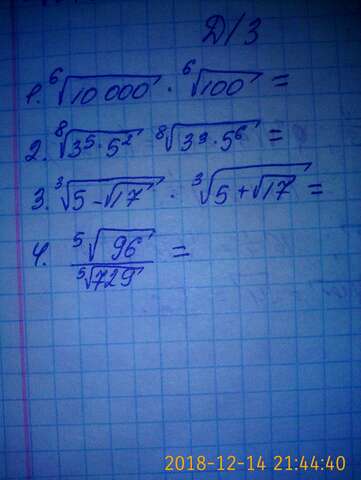 Д/З
1. ⁶√10 000 · ⁶√100 =
2. ⁸√3⁵·5² ⁸√3³·5⁶ =
3. ³√5-√17 · ³√5+√17 =
4. ⁵√96 / ⁵√729 =
2018-12-14 21:44:40